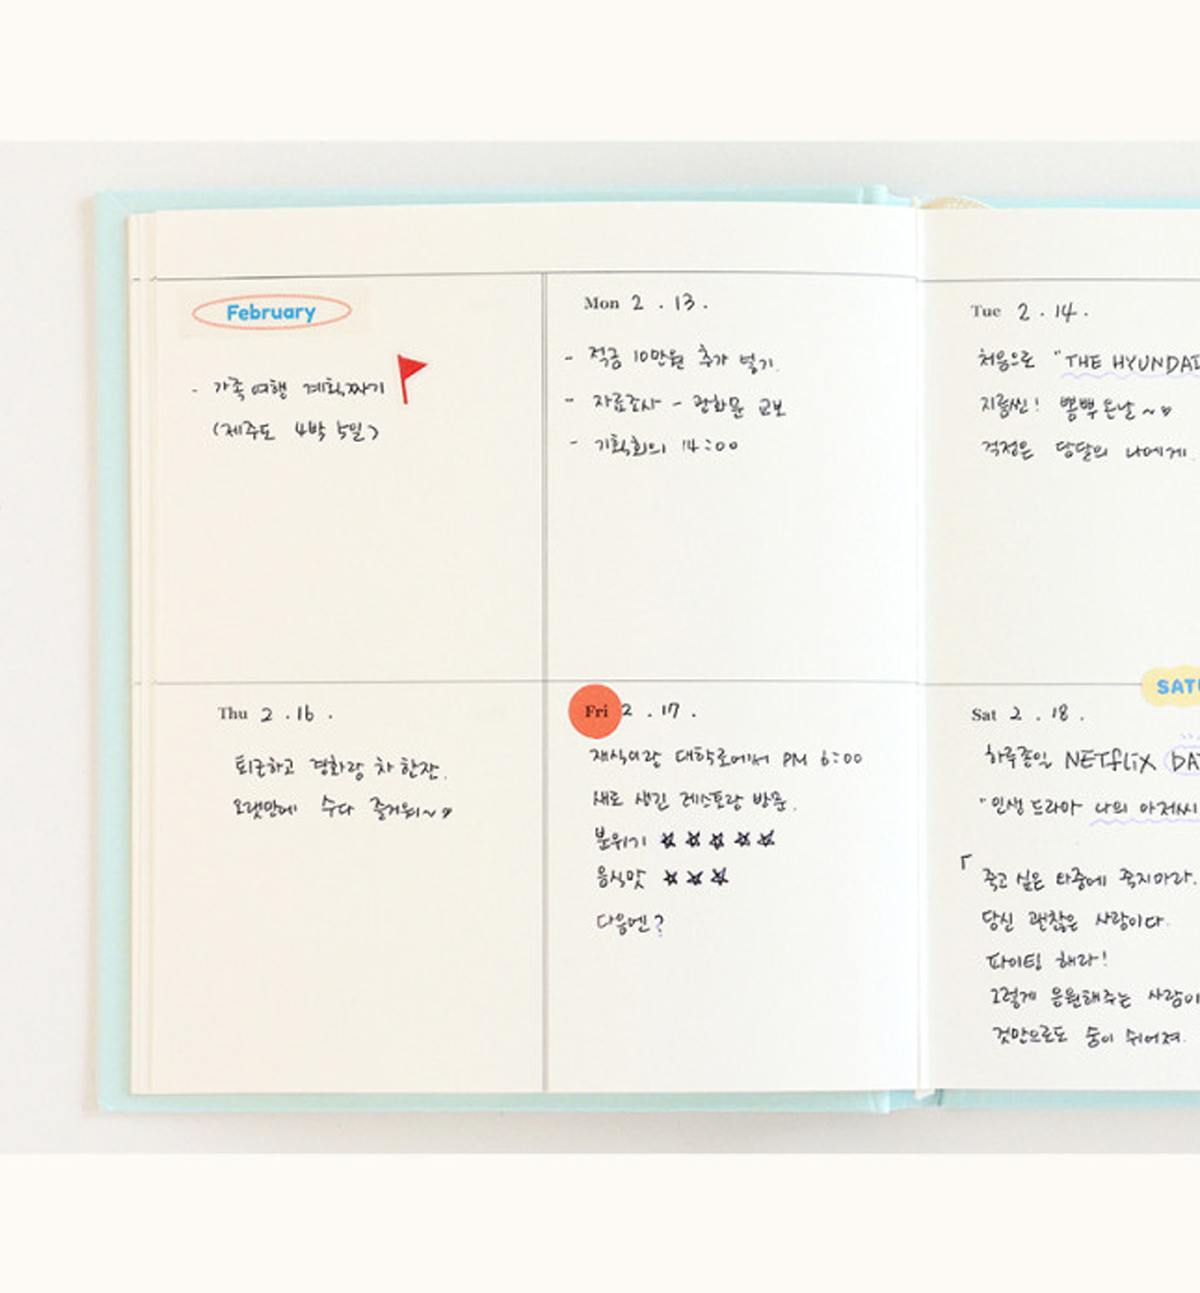 February
- 가족여행 계획짜기
(제주도 4박 5일)
Mon 2 . 13 .
- 적금 10만원 추가 넣기.
- 자료조사 - 광화문 교보
- 기획회의 14:00
Tue 2 . 14 .
처음으로 "THE HYUNDAI
지름씬! 뽐뿌온날~♥
걱정은 담달의 나에게.
Thu 2 . 16 .
퇴근하고 경화랑 차 한잔.
오랫만에 수다 즐거워~♥
Fri 2 . 17 .
재식이랑 대학로에서 PM 6:00
새로 생긴 레스토랑 방문.
분위기 ★★★★★
음식맛 ★★★
다음엔?
SATU
Sat 2 . 18 .
하루종일 NETFLIX DAY
"인생드라마 나의 아저씨
「죽고 싶은 와중에 죽지마라.
당신 괜찮은 사람이다.
파이팅 해라!
그렇게 응원해주는 사람이
것만으로도 숨이 쉬어져.